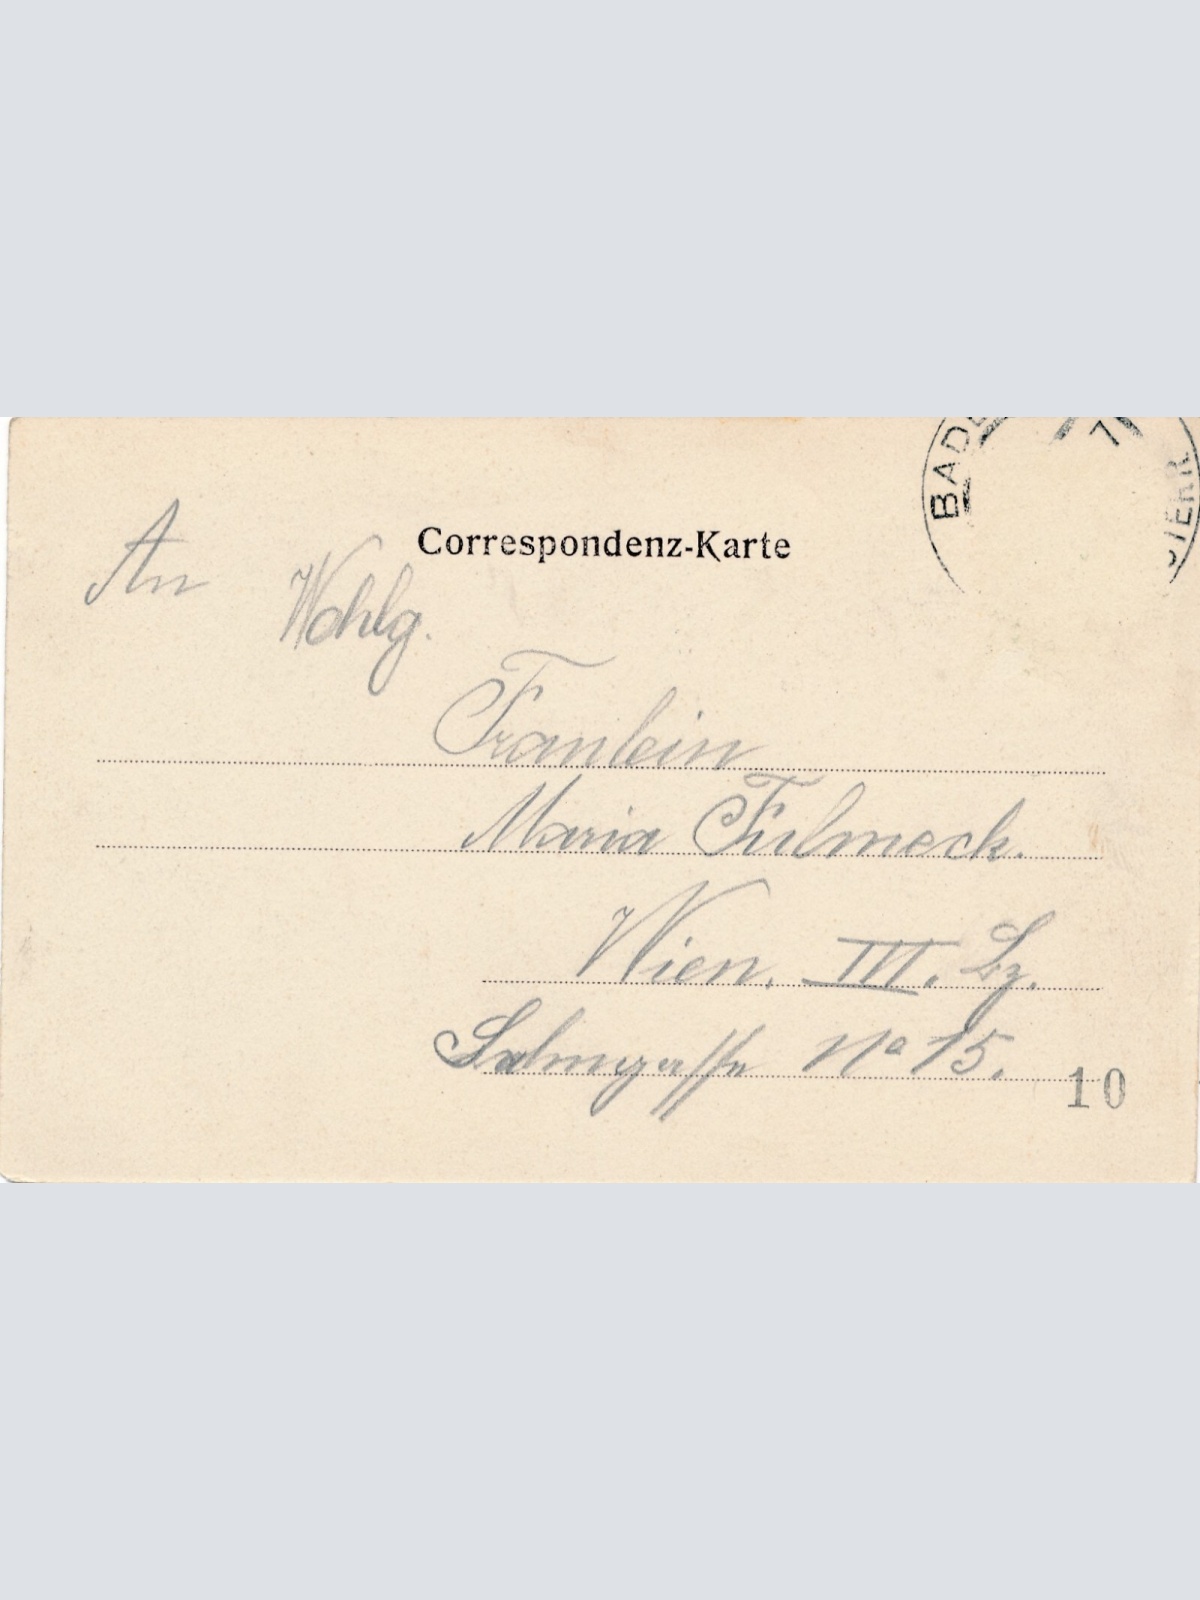 BADE
7
STERR
Correspondenz-Karte
An
Wohlg.
Fraulein
Maria Fulmeck.
Wien. III. Bz.
Salmgasse No 15.
10